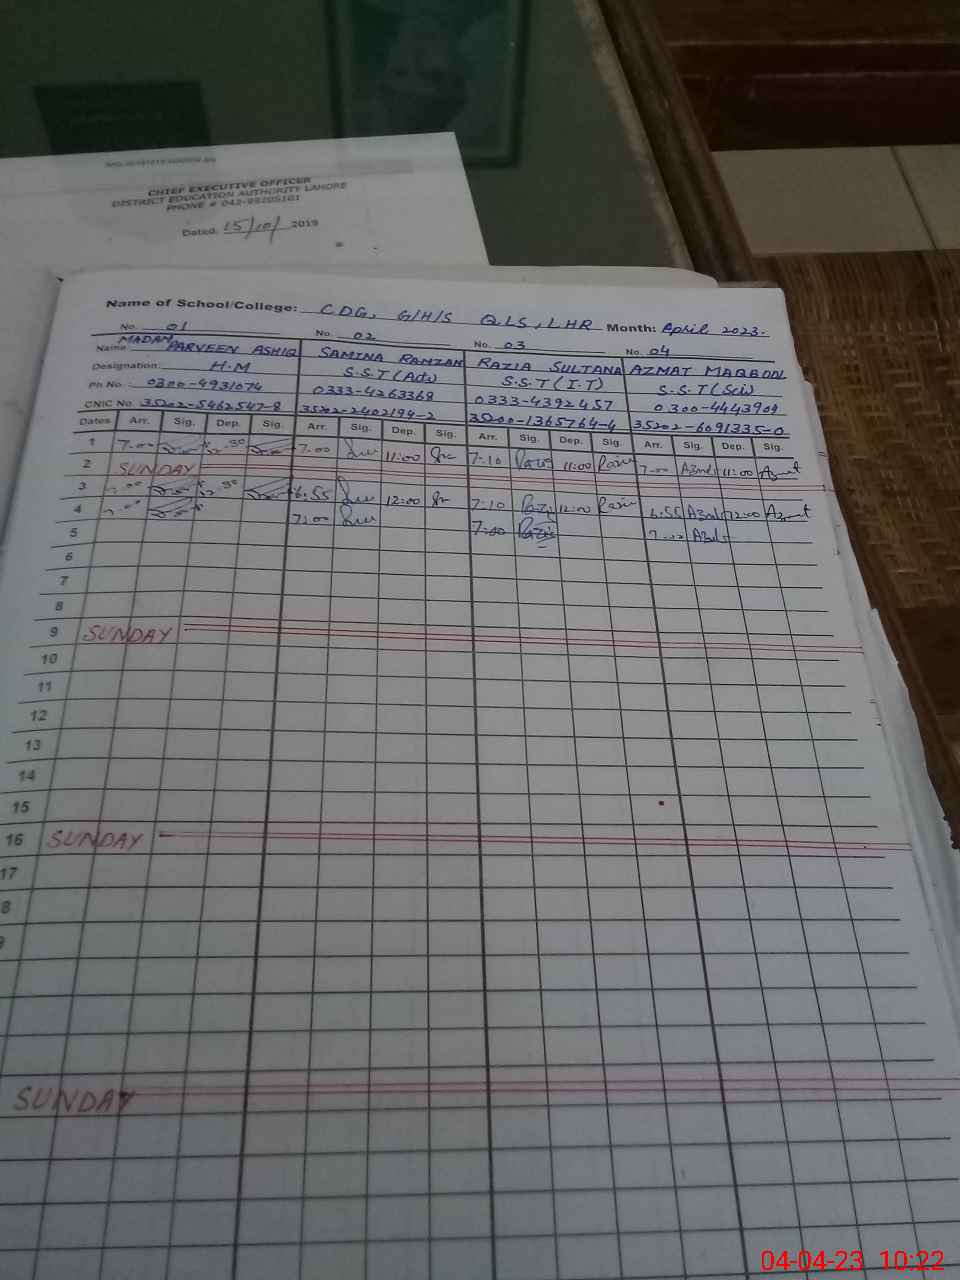 CHIEF EXECUTIVE OFFICER
DISTRICT EDUCATION AUTHORITY LAHORE
PHONE # 042-99205101
Dated. 15/10/ 2019
Name of School/College: CDG, G/H/S QLS, LHR Month: April 2023.
No. 01 No. 02 No. 03 No. 04
Name MADAM PARVEEN ASHIQ SAMINA RAMZAN RAZIA SULTANA AZMAT MAQBOOL
Designation: H.M S.S.T (Arts) S.S.T (I.T) S.S.T (Sci)
Ph No. 0300-4931074 0333-4263369 0333-4392457 0300-4443909
CNIC No. 35202-5462547-8 35202-2402194-2 35200-1365764-4 35202-6091335-0
Dates Arr. Sig. Dep. Sig. Arr. Sig. Dep. Sig. Arr. Sig. Dep. Sig. Arr. Sig. Dep. Sig.
1 7.00 7.00 11:00 7:10 11:00 7.00 11:00
2 SUNDAY
3 7.00 6.55 12:00 7:10 12:00 6.55 12:00
4 7.00 7:00 7:00 7.00
5
6
7
8
9 SUNDAY
10
11
12
13
14
15
16 SUNDAY
17
8
SUNDAY
04-04-23 10:22